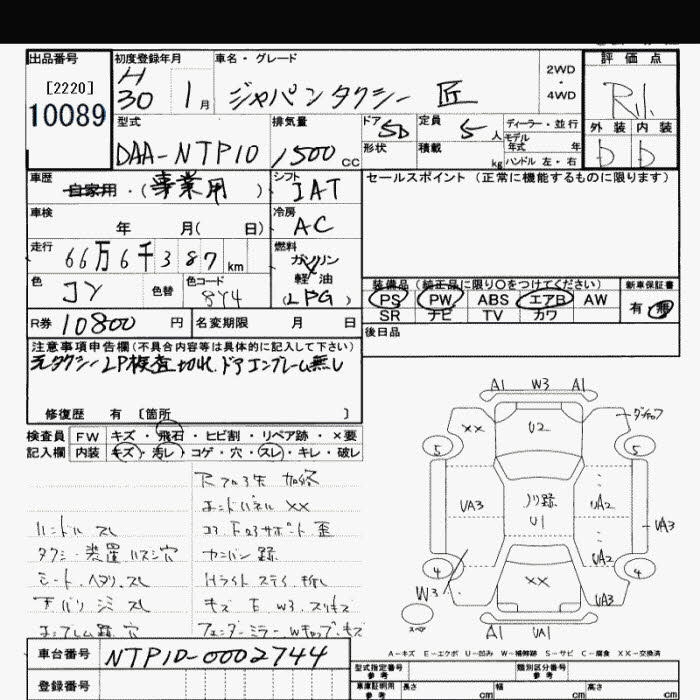 出品番号 初度登録年月 車名・グレード 評価点
[2220]
10089
H30 1月 ジャパンタクシー 匠 2WD・4WD R1
型式 排気量 ドア 定員 ディーラー・並行 外装 内装
DAA-NTP10 1500cc 5D 5人 モデル年式 年
形状 積載 kg ハンドル 左・右 D D
車歴 自家用・(事業用) シフト IAT セールスポイント (正常に機能するものに限ります)
車検 年 月( 日) 冷房 AC
走行 66万6千387km 燃料 ガソリン 軽油 (LPG)
色 コン 色替 色コード 8Y4
装備品 (純正品に限り○をつけてください) 新車保証書
PS PW ABS エアB AW 有・無
SR ナビ TV カワ
R券 10800円 名変期限 月 日 後日品
注意事項申告欄(不具合内容等は具体的に記入して下さい)
元タクシー LP検査切れ、ドアエンブレム無し
修復歴 有 〔箇所 〕
検査員記入欄 FW キズ・飛石・ヒビ割・リペア跡・×要
内装 キズ・汚レ・コゲ・穴・スレ・キレ・破レ
エンドパネル XX
ハンドル スレ
タクシー装置ハズシ穴 カンバン跡
シート、ヘタリ、スレ Hライト ステイ 折レ
天バリ シミ スレ
エンブレム跡 穴 フェンダーミラー Wキャップ、キズ
A1 W3 A1
XX U2
5 5
UA3 ノリ跡 U1 UA2 UA3
UA2
4 XX 4
W3 UA3
スペア A1 UA1
A-キズ E-エクボ U-凹み W-補修跡 S-サビ C-腐食 XX-交換済
車台番号 NTP10-0002744
登録番号
型式指定番号 参考 類別区分番号 参考
車庫証明用 参考 長さ cm 幅 cm 高さ cm